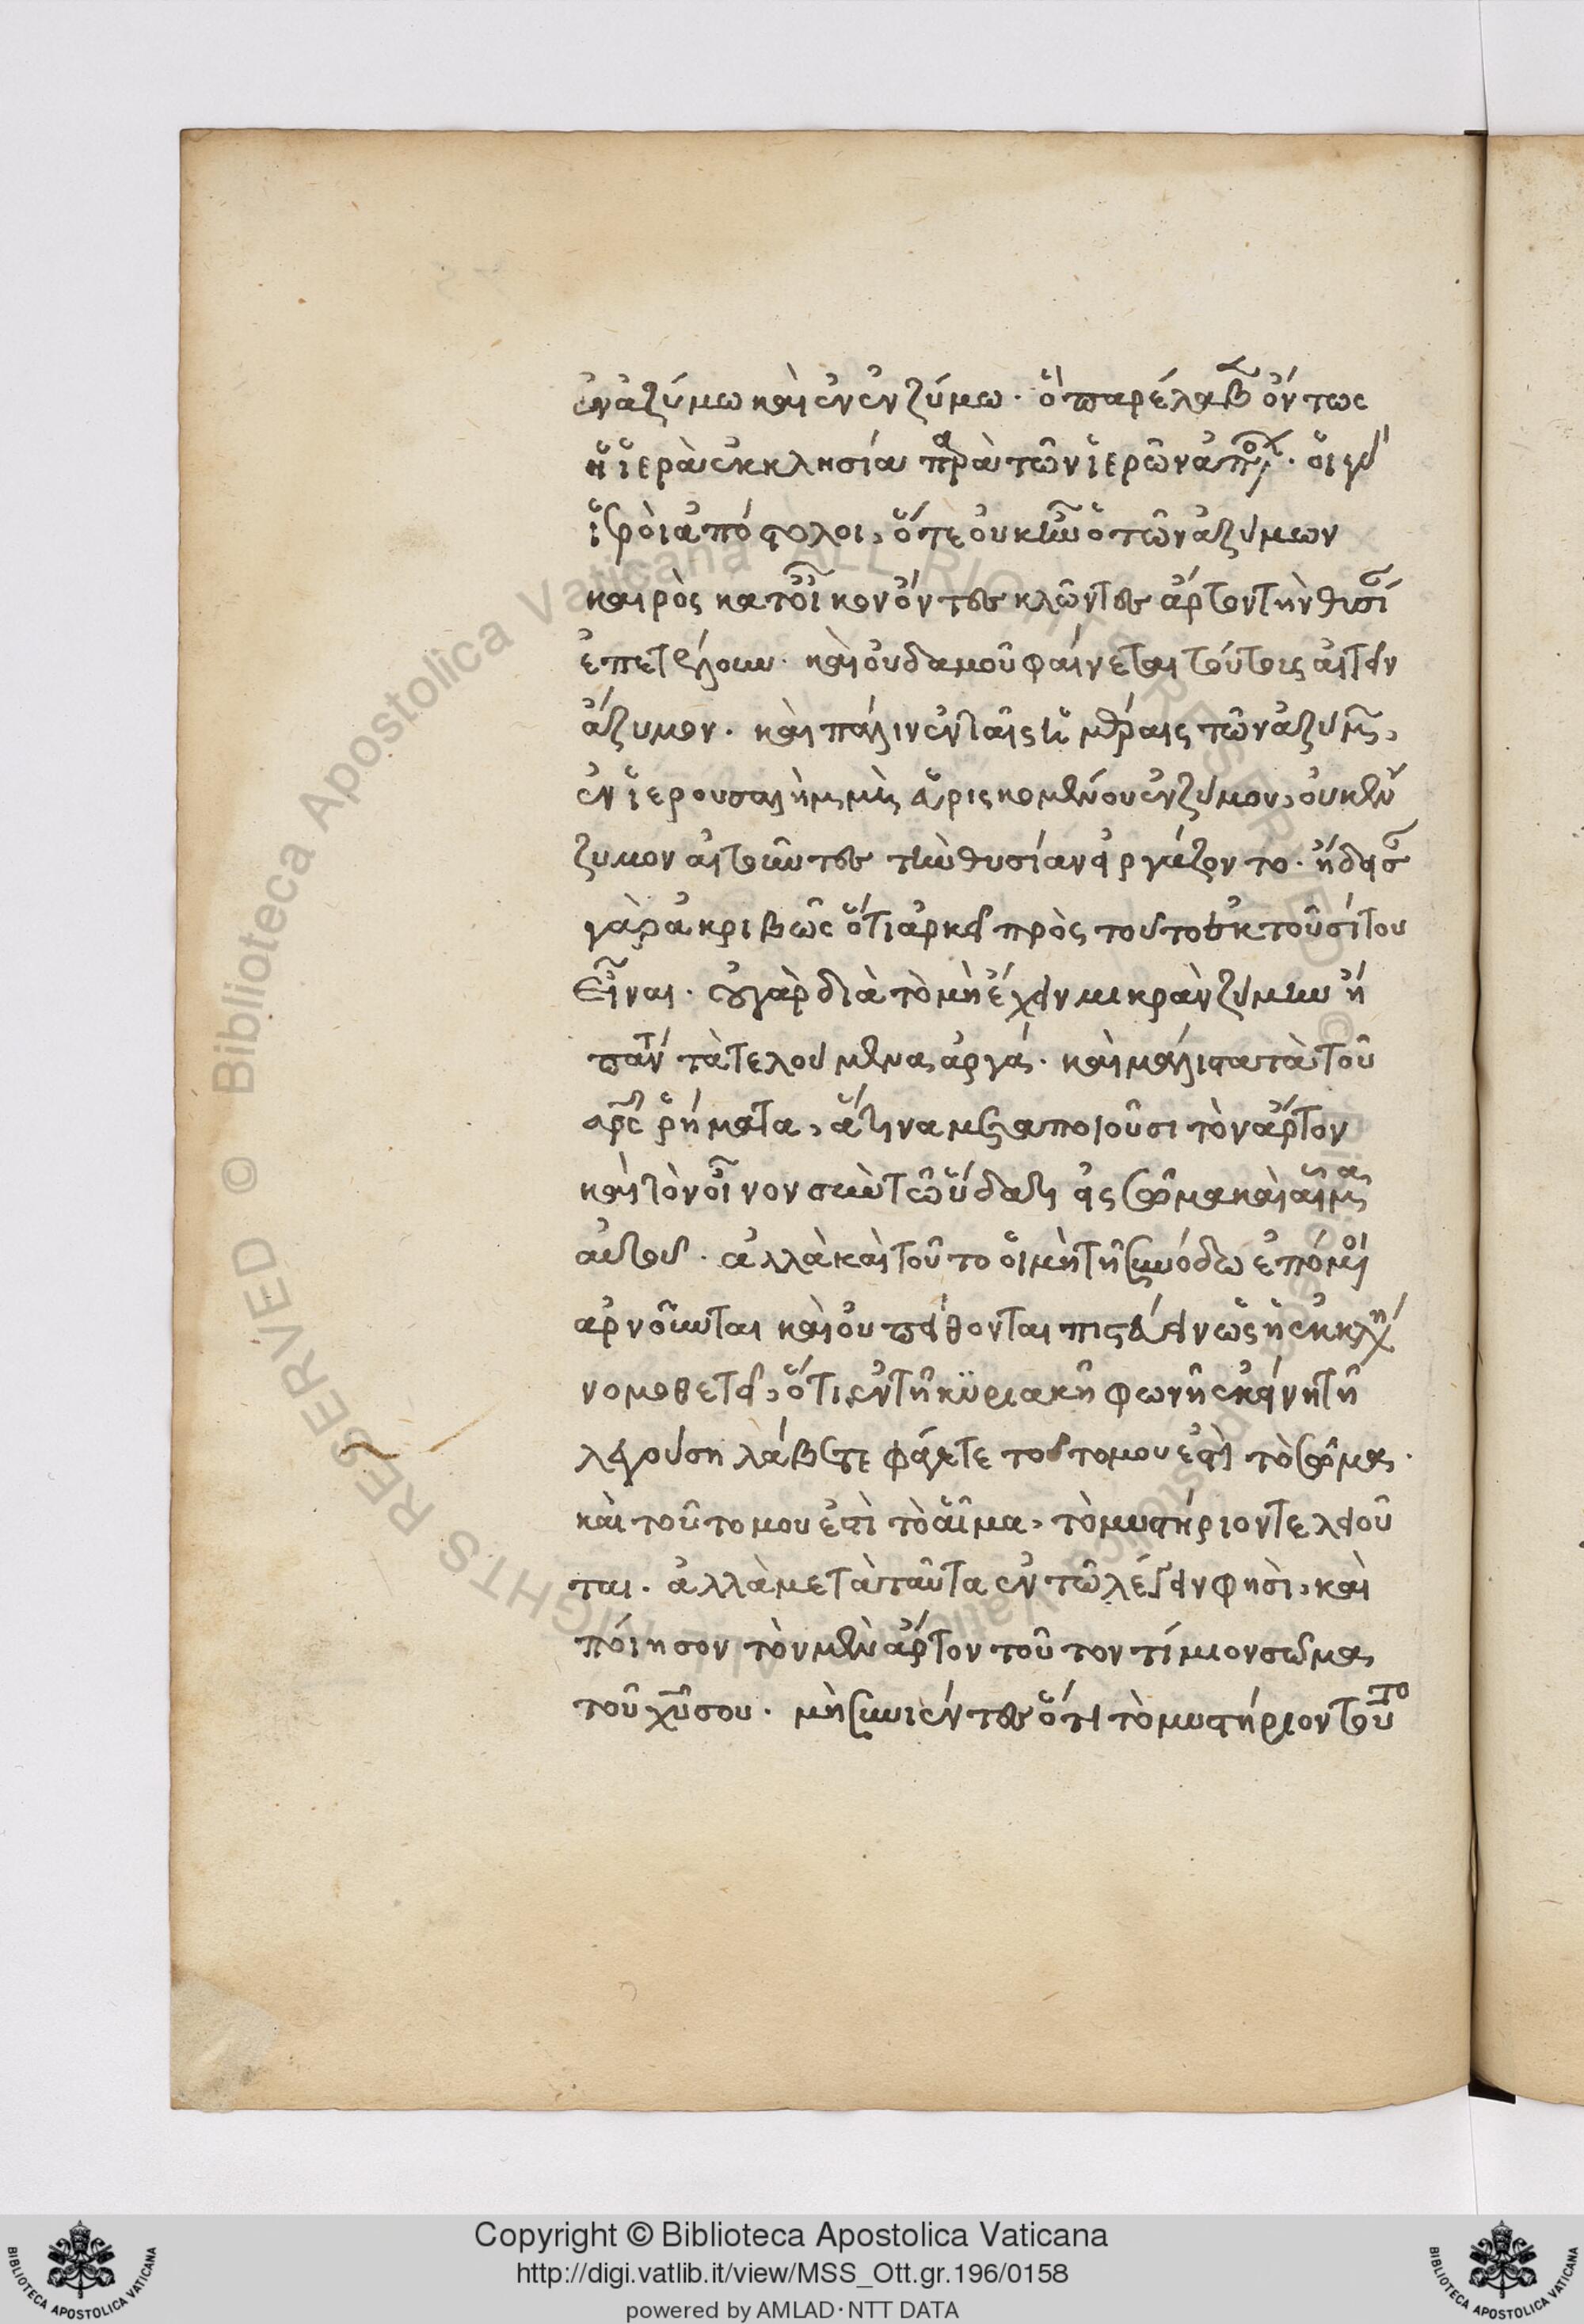 ἐν ἀζύμω καὶ ἐν ἐνζύμω · ὃ παρέλαβ ὄντως
ἡ ἱερὰ ἐκκλησία παρὰ τῶν ἱερῶν ἀποστόλ · οἱ γὰρ
ἱεροὶ ἀπόστολοι, ὅτε οὐκ ἦν ὁ τῶν ἀζύμων
καιρὸς κατ οἶκον ὄντες κλῶντες ἄρτον τὴν θυσί
ἐπετέλουν · καὶ οὐδαμοῦ φαίνεται τούτοις αἰτεῖν
ἄζυμον · καὶ πάλιν ἐν ταῖς ἡμέραις τῶν ἀζύμ,
ἐν ἱερουσαλὴμ μὴ εὑρισκομένου ἐνζύμου, οὐκ ἔν
ζυμον αἰτοῦντες τὴν θυσίαν εἰργάζοντο · ᾔδεισ
γὰρ ἀκριβῶς ὅτι ἀρκεῖ πρὸς τοῦτο ἐκ τοῦ σίτου
εἶναι · οὐ γὰρ διὰ τὸ μὴ ἔχειν μικρὰν ζύμην ἤ
πάντ τὰ τελούμενα ἀργά · καὶ μάλιστα τὰ τοῦ
ρς ῥήματα, ἅτινα μεταποιοῦσι τὸν ἄρτον
καὶ τὸν οἶνον σὺν τῶ ὕδατι εἰς σῶμα καὶ αἷμα
αὐτοῦ · ἀλλὰ καὶ τοῦτο οἱ μὴ τῆ συνόδω ἑπόμοι
ἀρνοῦνται καὶ οὐ πείθονται πιστεύειν ὡς ἡ ἐκκλη
νομοθετεῖ, ὅτι ἐν τῆ κυριακῆ φωνῆ ἐκείνη τῆ
λεγούση λάβετε φάγετε τοῦτο μου ἐστὶ τὸ σῶμα ·
καὶ τοῦτο μου ἐστὶ τὸ αἷμα, τὸ μυστήριον τελειοῦ
ται · ἀλλὰ μετὰ ταῦτα ἐν τῶ λέγειν φησὶ, καὶ
πόιησον τὸν μὲν ἄρτον τοῦτον τίμιον σῶμα
τοῦ χυ σου · μὴ συνιέντες ὅτι τὸ μυστήριον τοῦτο